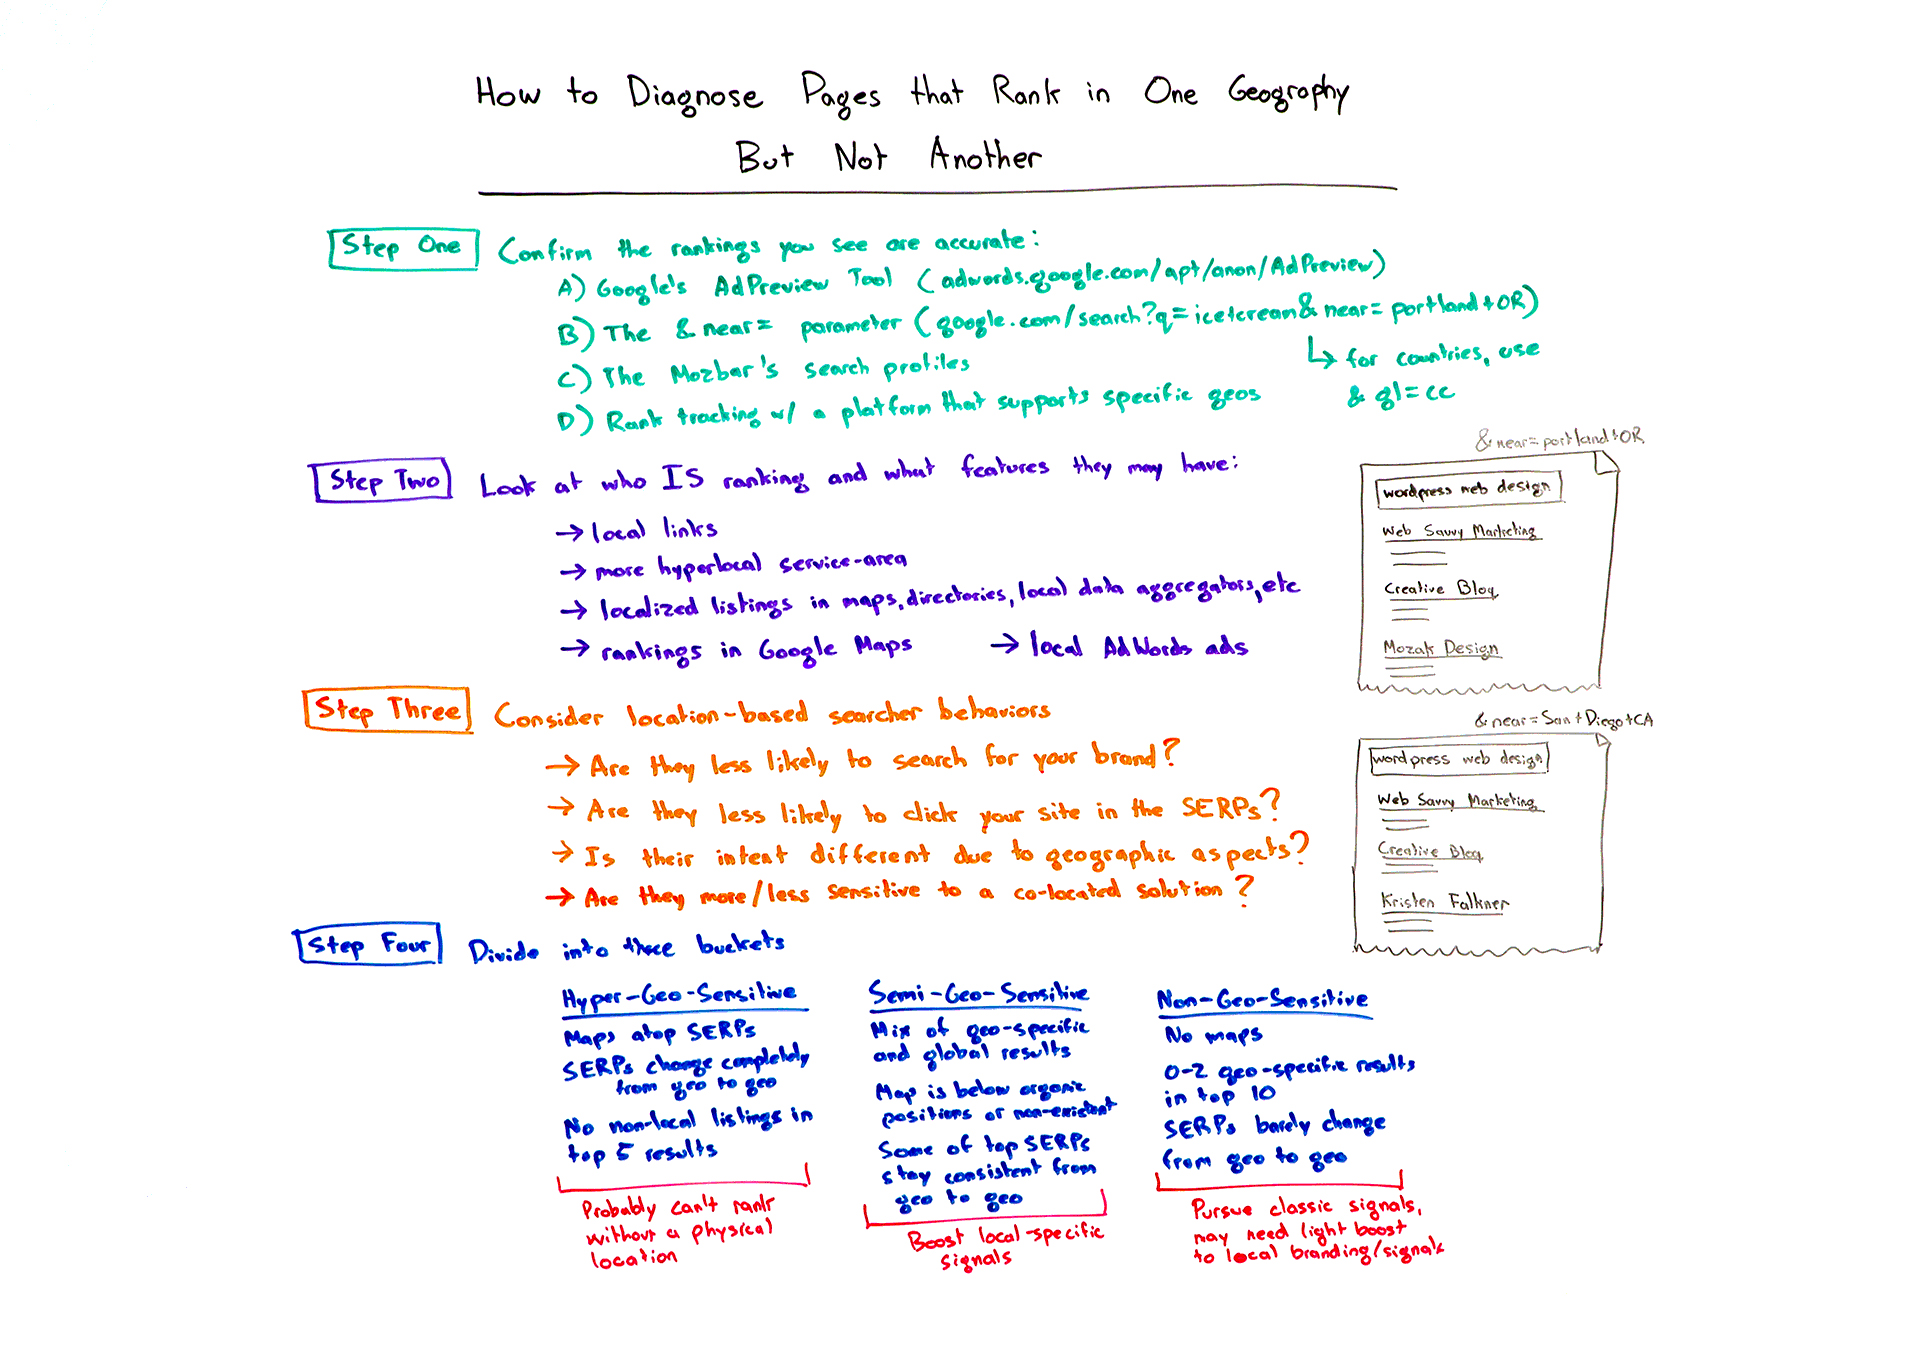 How to Diagnose Pages that Rank in One Geography
But Not Another
Step One
Confirm the rankings you see are accurate:
A) Google's AdPreview Tool (adwords.google.com/apt/anon/AdPreview)
B) The &near= parameter (google.com/search?q=ice+cream&near=portland+OR)
↳ for countries, use
&gl=cc
C) The Mozbar's search profiles
D) Rank tracking w/ a platform that supports specific geos
Step Two
Look at who IS ranking and what features they may have:
→ local links
→ more hyperlocal service-area
→ localized listings in maps, directories, local data aggregators, etc
→ rankings in Google Maps
→ local AdWords ads
&near=portland+OR
wordpress web design
Web Savvy Marketing
Creative Blog
Mozak Design
Step Three
Consider location-based searcher behaviors
→ Are they less likely to search for your brand?
→ Are they less likely to click your site in the SERPs?
→ Is their intent different due to geographic aspects?
→ Are they more/less sensitive to a co-located solution?
&near=San+Diego+CA
wordpress web design
Web Savvy Marketing
Creative Blog
Kristen Falkner
Step Four
Divide into three buckets
Hyper-Geo-Sensitive
Maps atop SERPs
SERPs change completely
from geo to geo
No non-local listings in
top 5 results
Probably can't rank
without a physical
location
Semi-Geo-Sensitive
Mix of geo-specific
and global results
Map is below organic
positions or non-existent
Some of top SERPs
stay consistent from
geo to geo
Boost local-specific
signals
Non-Geo-Sensitive
No maps
0-2 geo-specific results
in top 10
SERPs barely change
from geo to geo
Pursue classic signals,
may need light boost
to local branding/signals